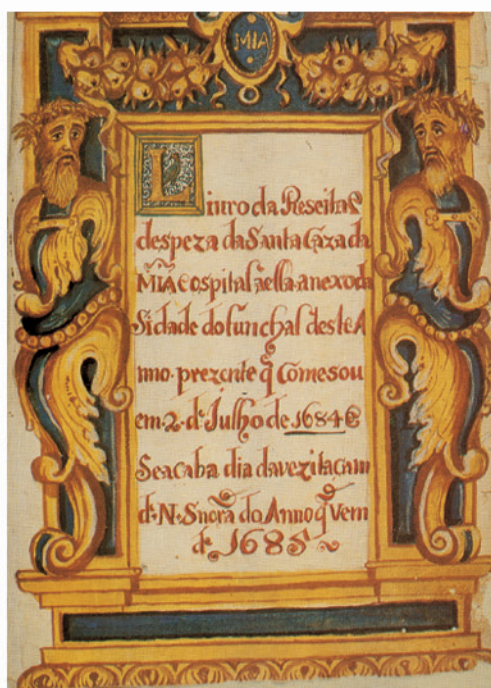 MIA
Liuro da Reseita &
despeza da Santa Caza da
MIA e ospital a ella anexo da
Sidade do funchal deste A
nno. prezente q̃ Comesou
em. 2. de Julho de 1684 &
Se acaba dia da vezitaçam
de N. Snorã do Anno q̃ vem
de 1685